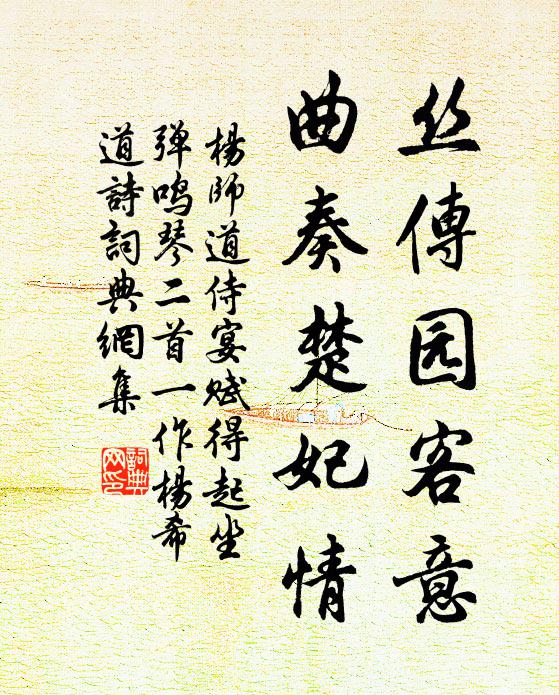 丝傳园客意
曲奏楚妃情
楊師道侍宴赋得起坐
弹鸣琴二首一作楊希
道詩詞典網集
詞典网印